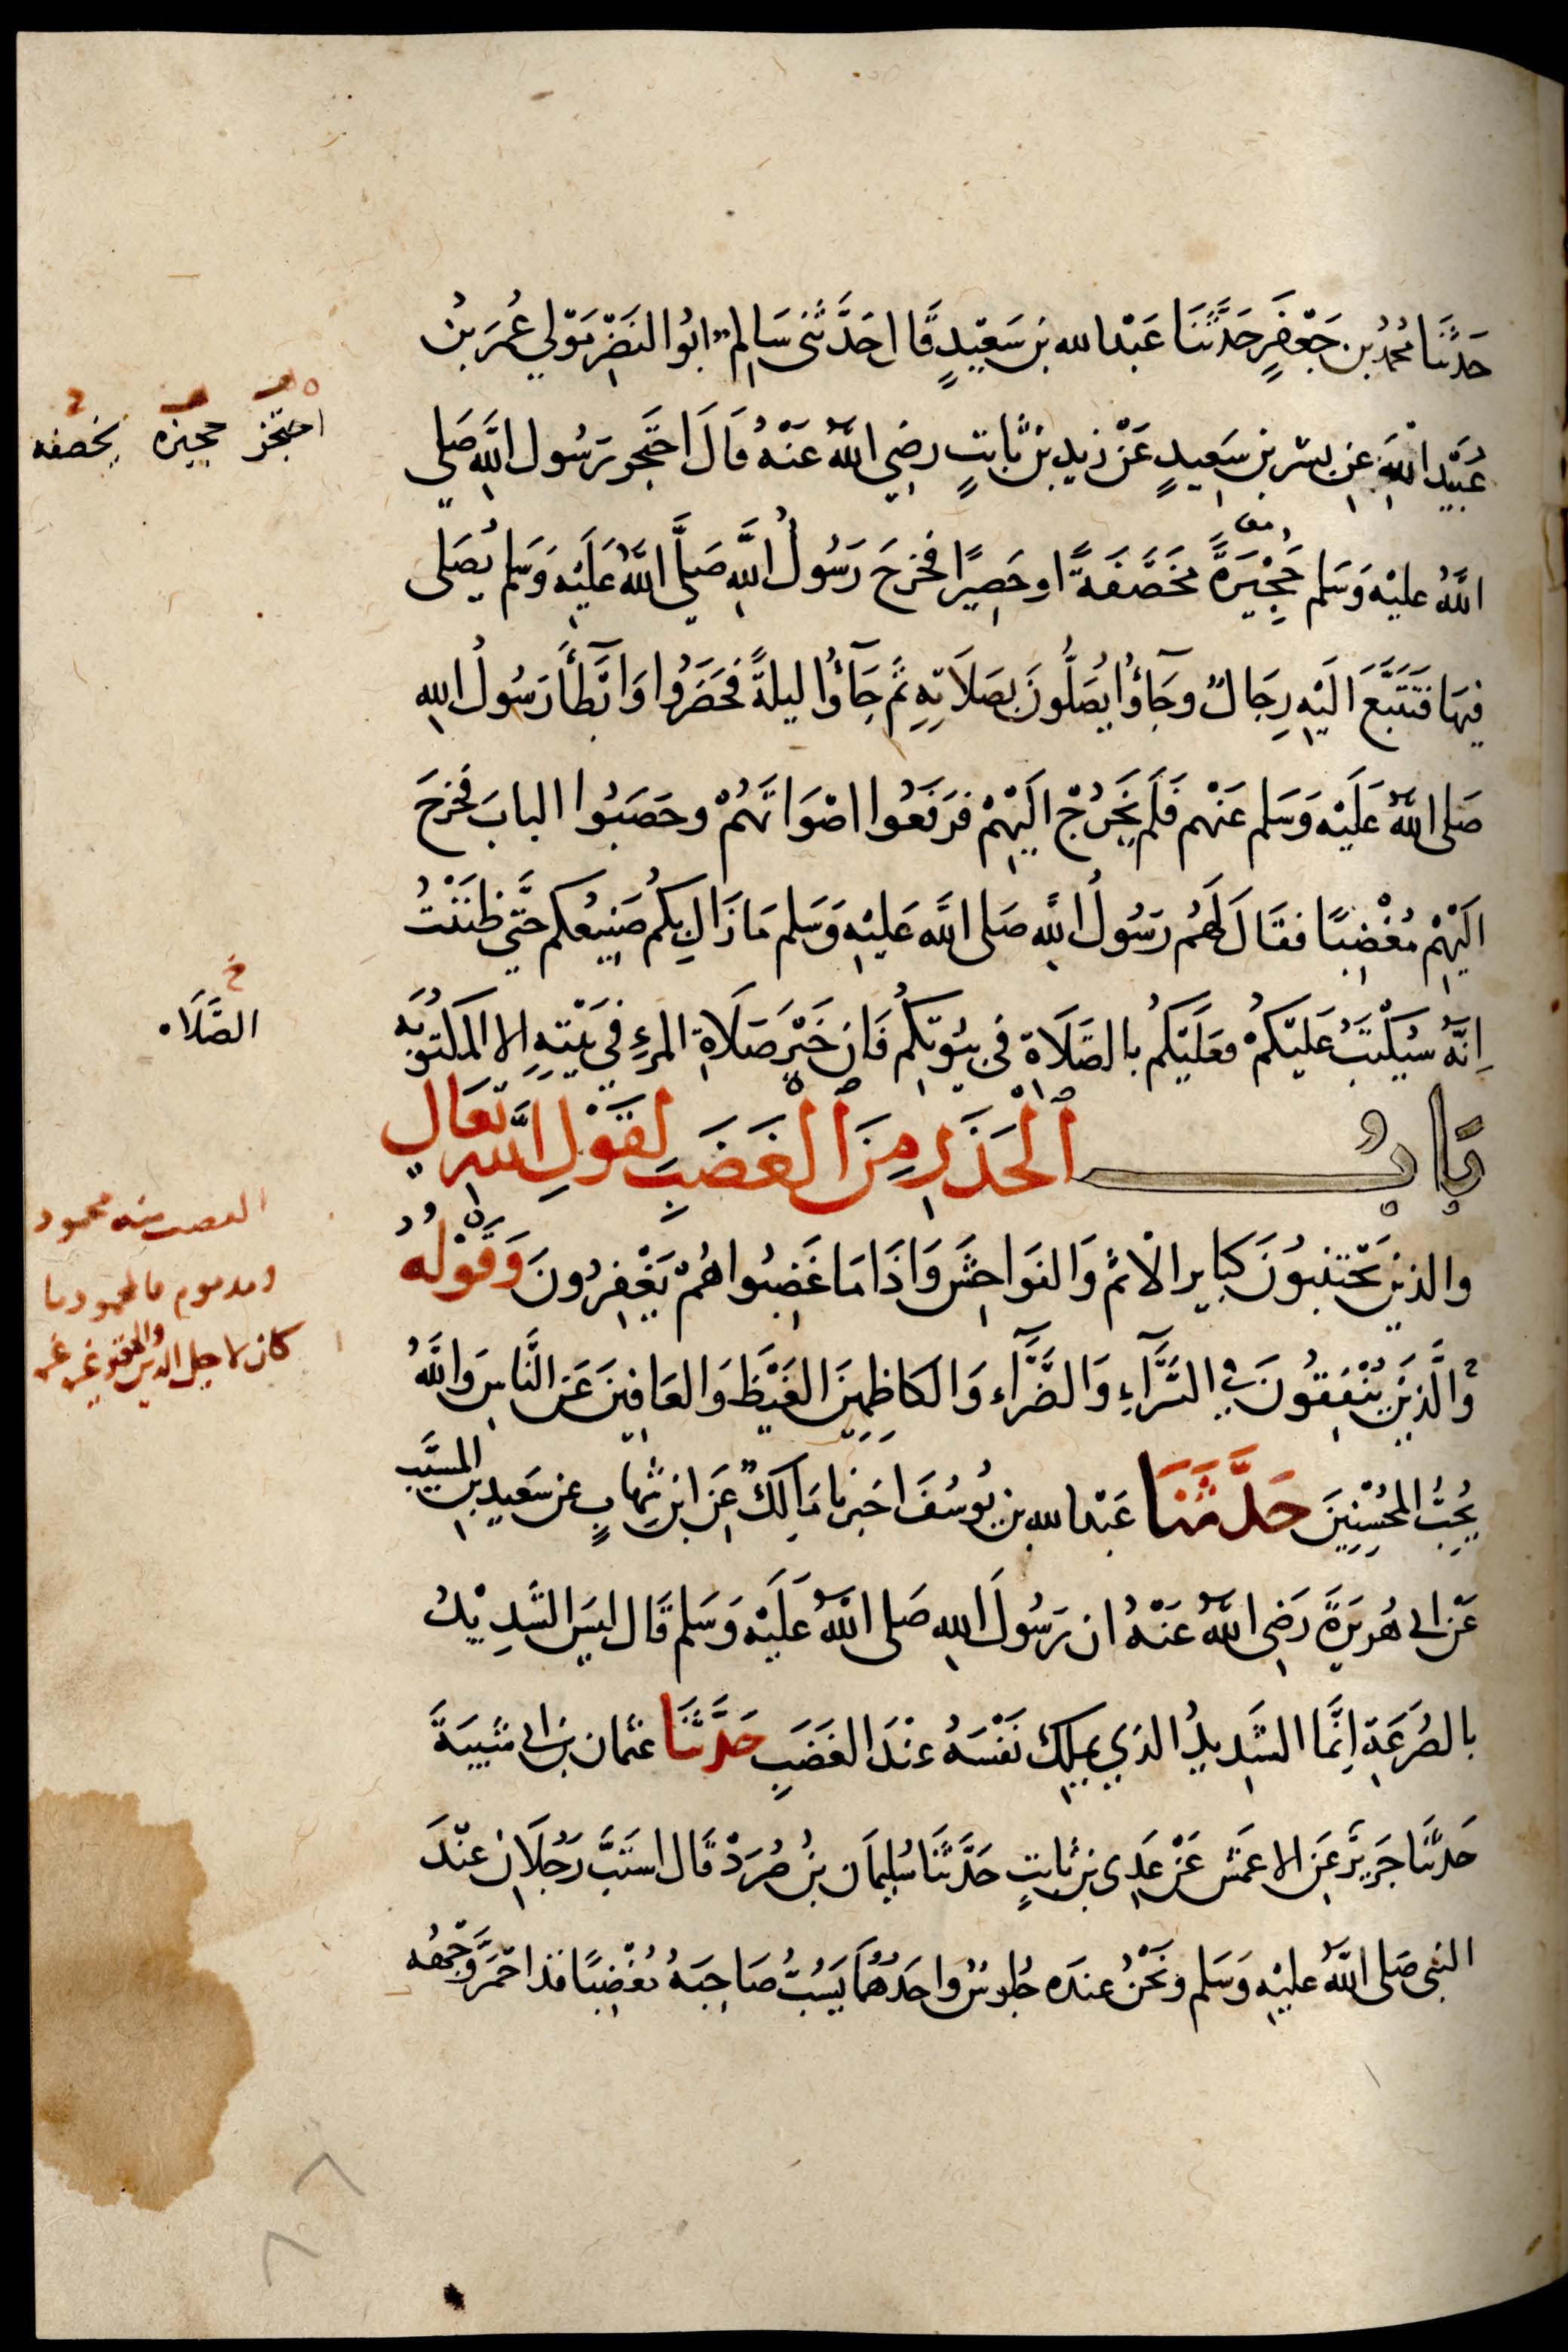 حَدَّثَنَا محمدُ بن جَعْفَرٍ حَدَّثَنَا عَبْدالله بن سَعِيْدٍ قَال حَدَّثَنِى سَالِم ابُوا النَضْرِ مَوْلى عُمَرَ بنُ
عُبَيْدِ اللهِ عن بسْر بن سَعِيدٍ عَنْ زيدِ بن ثَابتٍ رضِي اللهُ عَنْهُ قَالَ احتَجر رَسُول اللهِ صَلى
اللهُ عليْه وَسَلم حُجَيْرَةً مخَصَّفَةً او حَصِيرًا فخرَجَ رَسُولُ اللهِ صَلَّى اللهُ عَلَيْه وَسَلم يُصَلى
فِيهَا فَتَتَبَّعَ الَيْهِ رِجَالٌ وجَآؤُا يُصَلُّونَ بِصَلَاتِهِ ثمَّ جَآؤُا ليلةً فَحَضَرُوا وَابْطَأَ رَسُولُ اللهِ
صَلى اللهُ عَلَيْه وَسَلم عَنْهم فَلَم يَخْرُجْ الَيْهِمْ فرَفَعُوا اصْوَاتَهُمْ وحَصَبُوا البابَ فخرجَ
الَيْهِمْ مُغْضِبًا فقَالَ لَهُم رَسُولُ اللهِ صَلى اللهُ عَليْهِ وَسَلم مَا زَالِ بِكُم صَنِيعُكم حَتَّى ظنَنْتُ
اِنَّهُ سَيُكْتَبُ عَليْكمْ فعَلَيْكمُ بالصَّلَاة فى بيُوتِكُم فَان خَيْرَ صَلَاةِ المرْءِ فِي بَيْتِهِ الا المكتُوبَه
بَابُ الْحَذَرِ مِنَ الْغَضَبِ لقَوْلِ اللهِ تعَالى
والذين يَجْتنبُونَ كبايرِ الْاثم وَالفوَاحِشَ وَاذَا مَا غَضِبُوا هُمْ يَغْفِرُونَ وَقَوْلُهُ
وَالَّذِينَ يُنْفِقُونَ فِي السَّرَّآءِ وَالضَّرَّآء وَالكَاظِمِينَ الغَيْظَ وَالعَافِينَ عَنِ النَّاسِ وَاللهُ
يُحِبُّ المُحْسِنِينَ حَدَّثَنَا عَبْدالله بن يُوسُفَ اخبرنا مَالكٌ عَن ابن شِهَابٍ عن سَعِيدِ بن المسيَّبِ
عَن ابى هُرَيرَةَ رَضِى اللهُ عَنْهُ ان رَسُولَ اللهِ صَلى اللهُ عَلَيْه وَسَلم قَال ليسَ الشَدِيْدُ
بالصُرَعَةِ اِنَّمَا الشَدِيدُ الذِي يملِك نَفْسَهُ عنْدَ الغَضَبِ حَدَّثَنَا عثمان بن ابى شَيبَةَ
حَدَّثَنَا جَرِيرٌ عَنِ الاعمَش عَنْ عَدِى بن ثابتٍ حَدَّثَنَا سُلِيمَان بنُ صُرَدْ قَال استَبَّ رَجُلَان عنْدَ
النبى صَلى اللهُ عليْهِ وَسَلم ونَحْنُ عندَه جُلوسٌ واحَدُهُمَا يَسُبُّ صَاحِبَهُ مُغْضِبًا قد احْمَرَّ وَجْهُه
احتجر حجيزه بخصفه
خ
الصَّلَاه
الغضب منه محمود
ومذموم فالمحمود ما
كان لاجل الدين